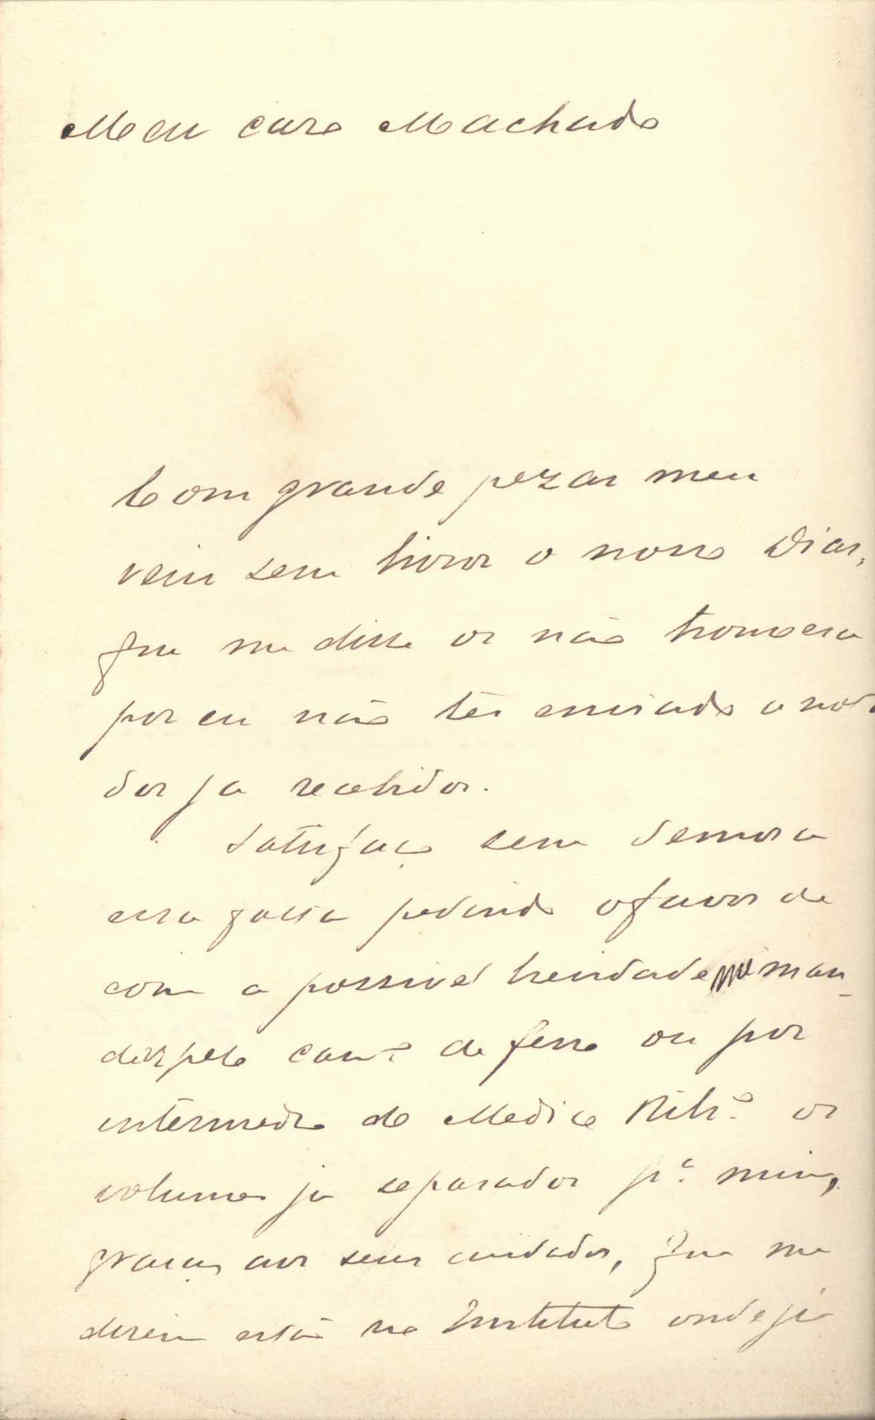 Meu caro Machado
Com grande pezar meu
veiu sem livros o nosso Dias,
que me disse os não trouxera
por eu não ter enviado a nota
dos ja recebidos.
Satisfaço sem demora
essa falta pedindo o favor de
com a possivel brevidade me man-
dar pelo cam.º de ferro ou por
intermedio do Medico Rib.º os
volumes ja separados p.ª mim,
graças aos seus cuidados, que me
dizem estão no Instituto onde já